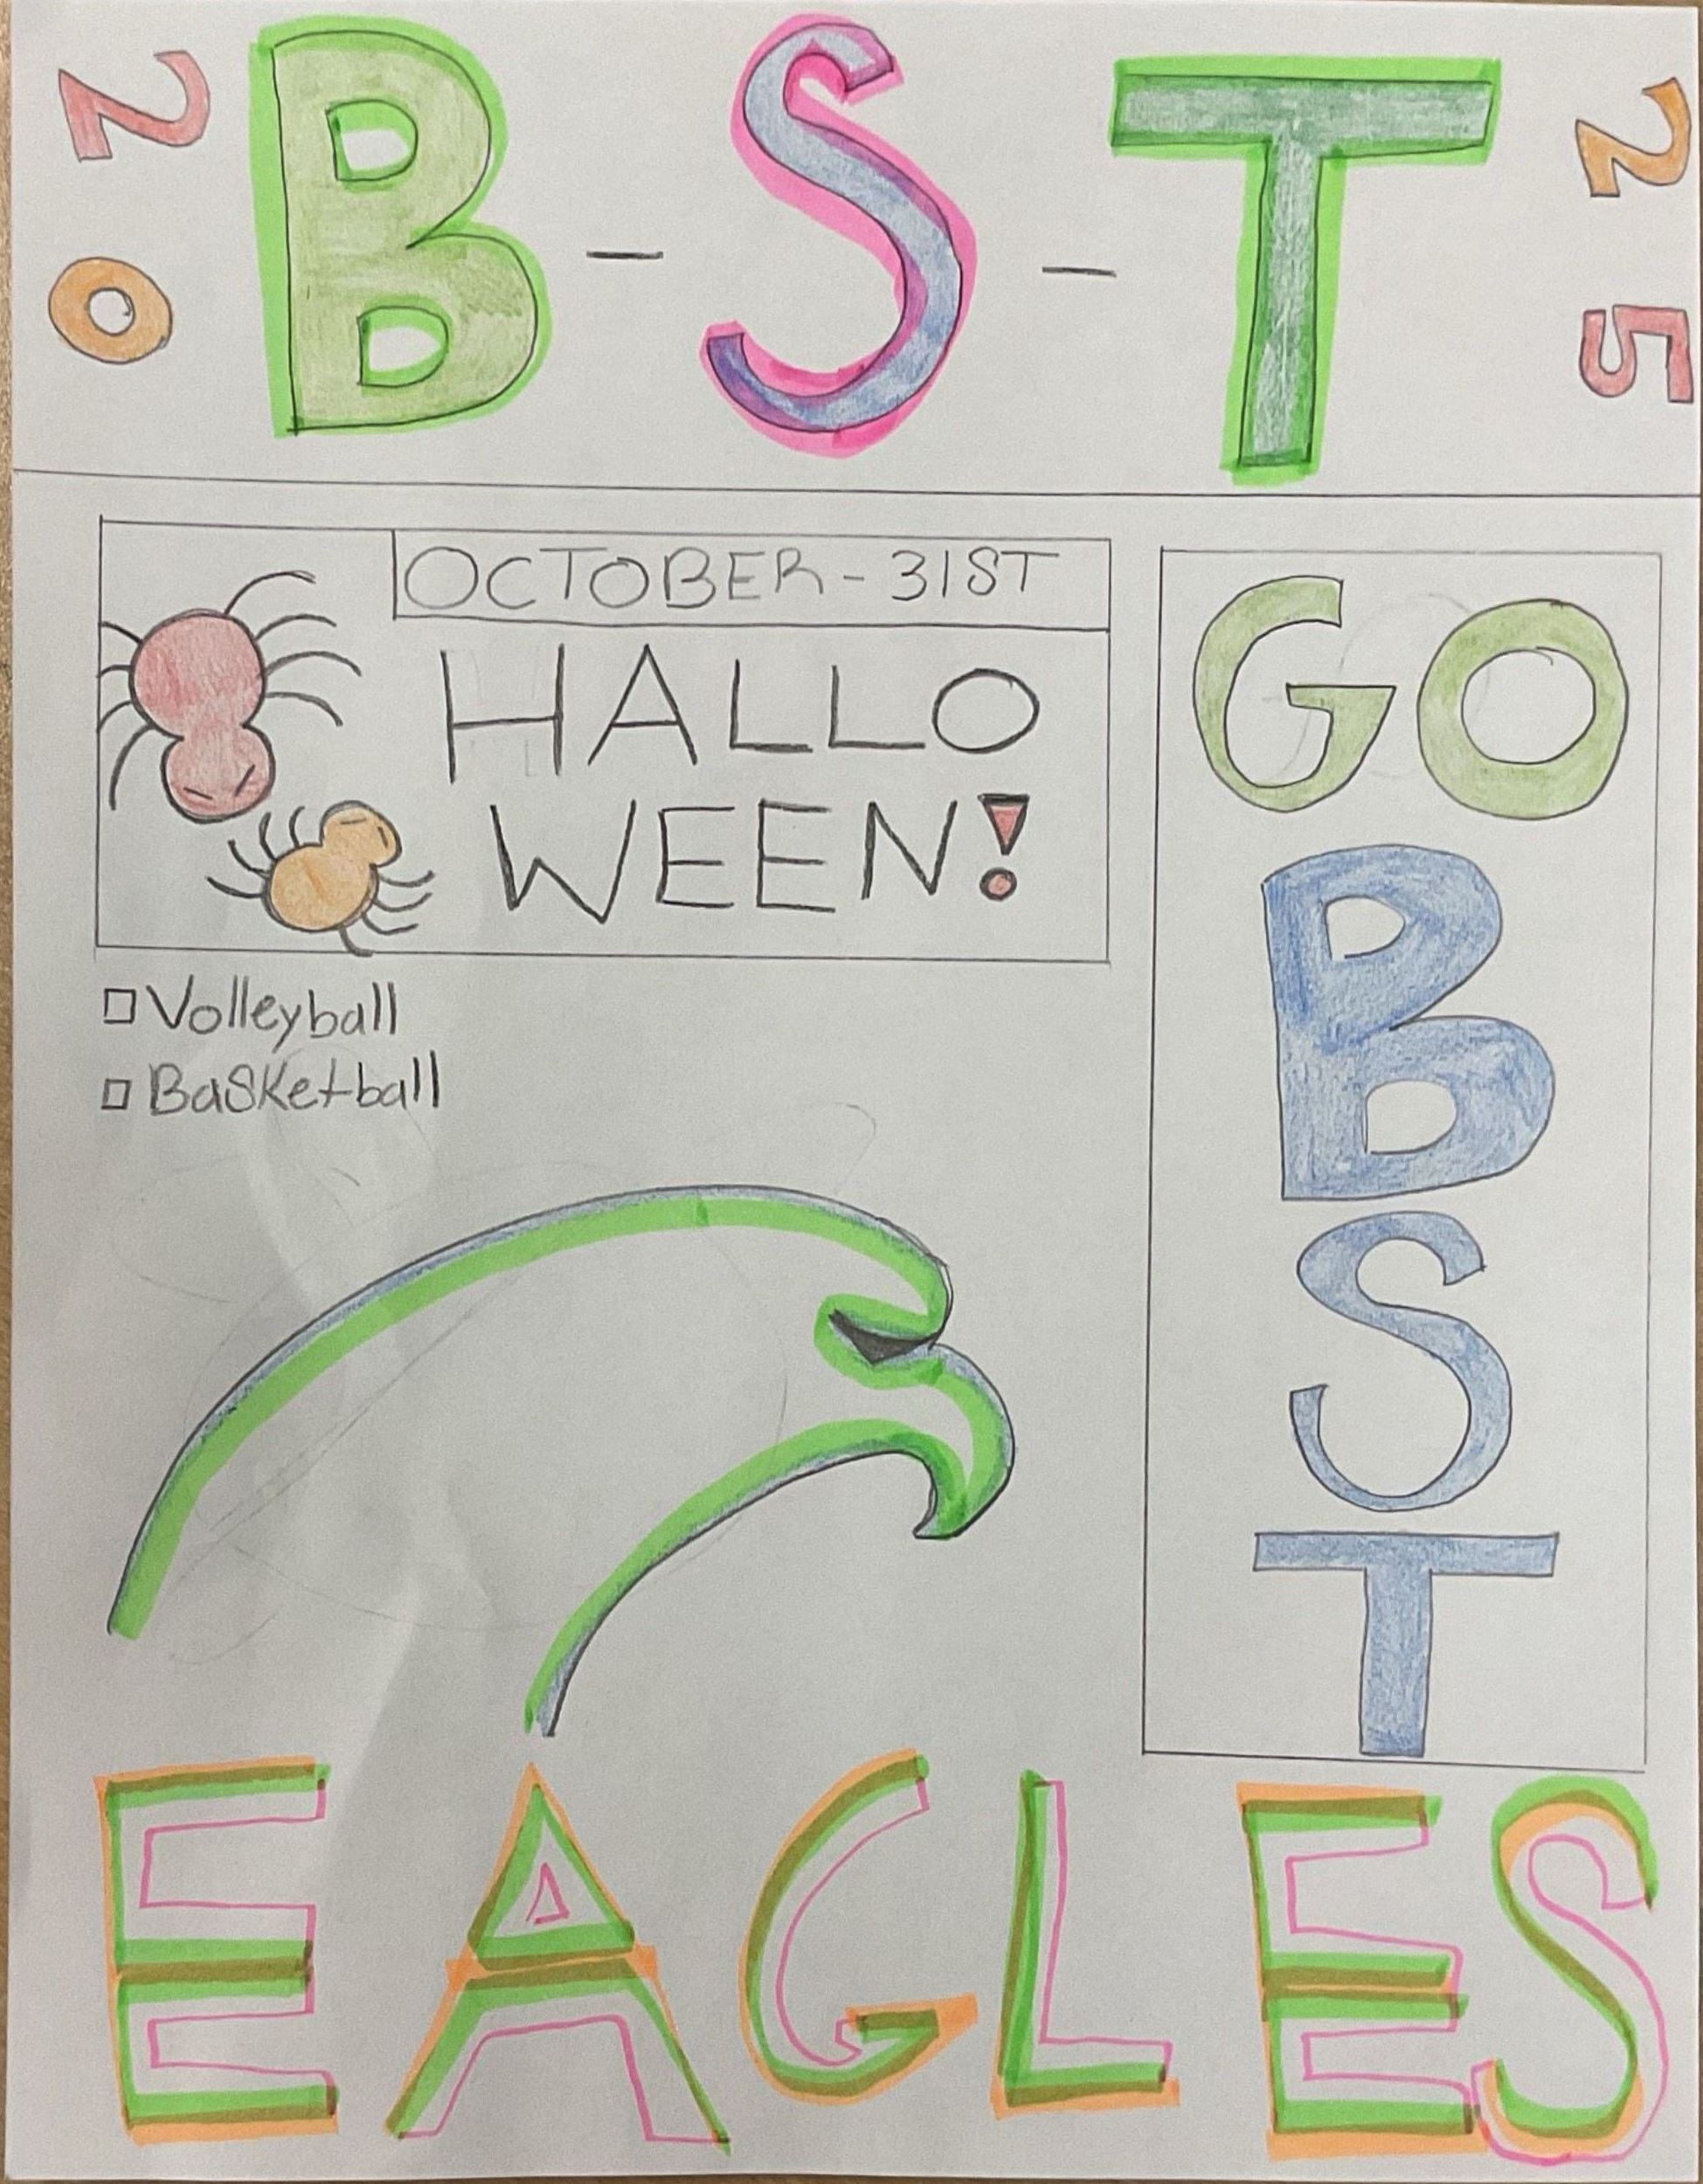 20 B-S-T 25
OCTOBER-31ST
HALLO
WEEN!
Volleyball
Basketball
GO
B
S
T
EAGLES